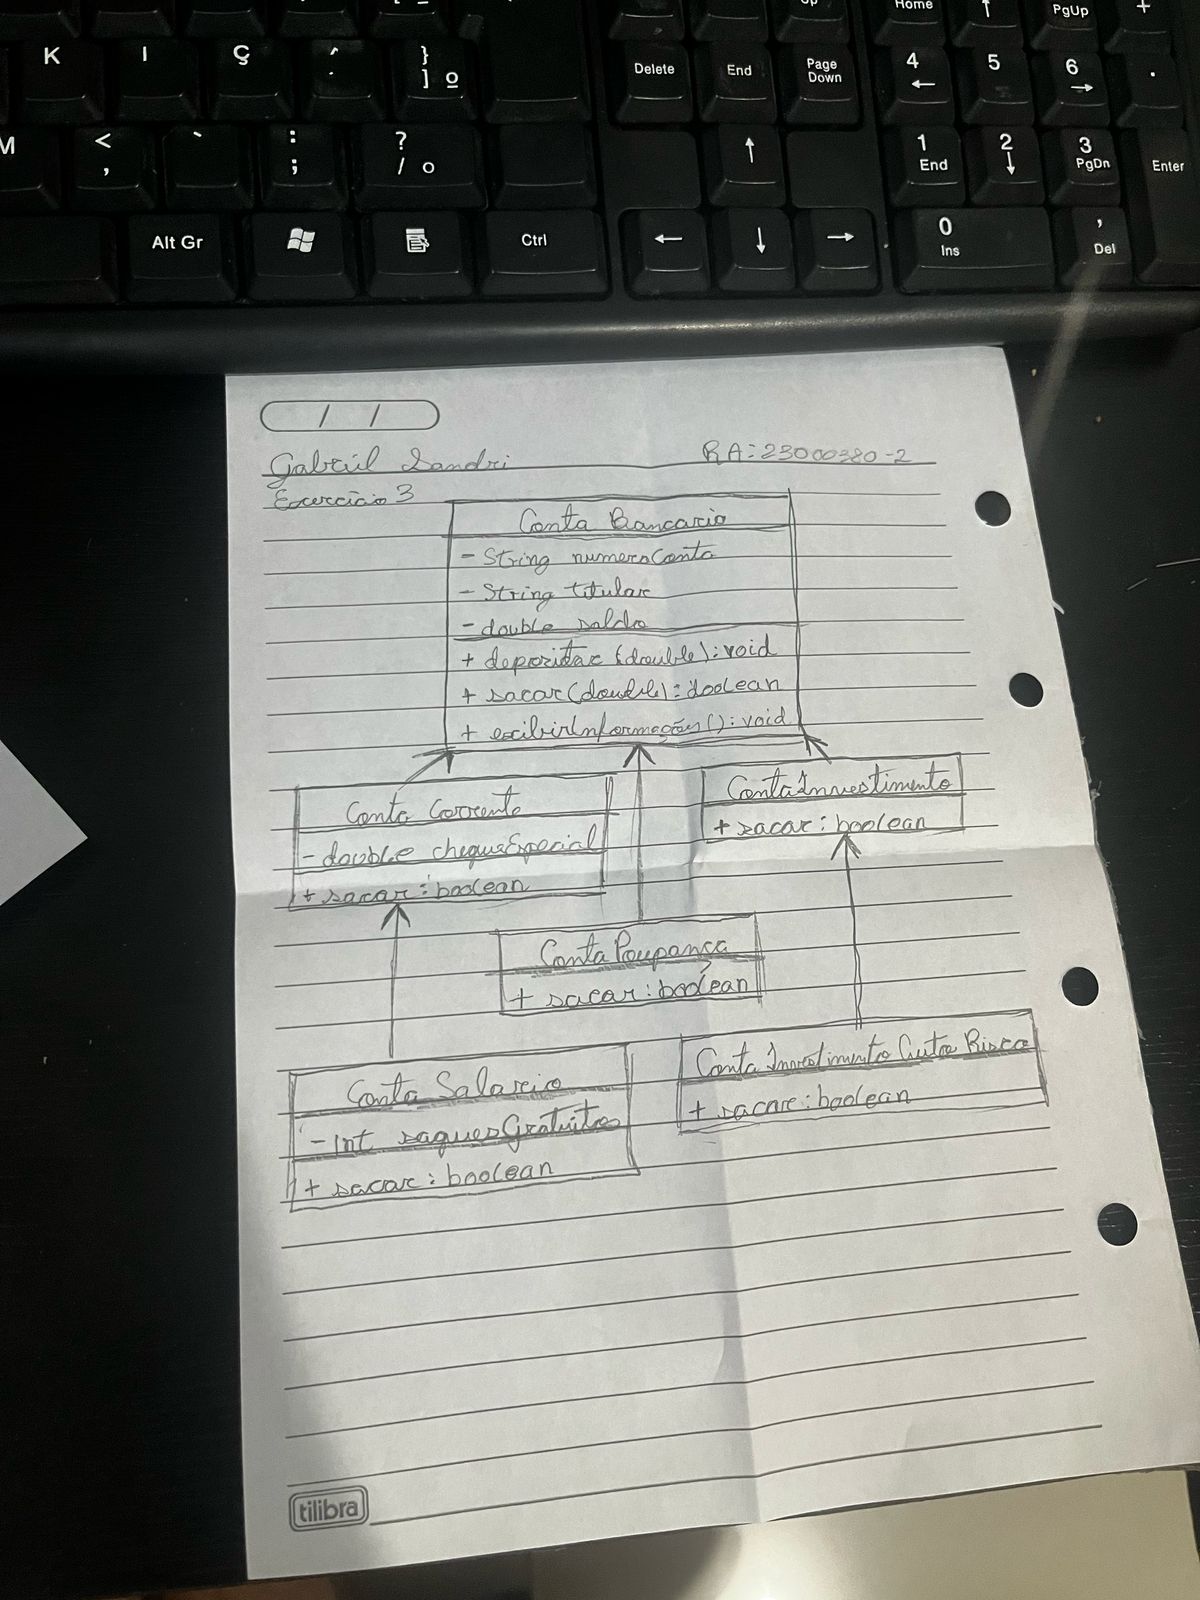 Up
Home
↑
PgUp
+
K
I
Ç
^
.
}
]
º
Delete
End
Page
Down
4
←
5
6
→
.
M
<
,
`
:
;
?
/
o
↑
1
End
2
↓
3
PgDn
Enter
Alt Gr
Ctrl
←
↓
→
0
Ins
,
Del
/ /
Gabriel Sandri RA: 23000380-2
Exercício 3
Conta Bancaria
- String numeroConta
- String titular
- double saldo
+ depositar (double): void
+ sacar (double): boolean
+ exibirInformações (): void
Conta Corrente
- double chequeEspecial
+ sacar: boolean
ContaInvestimento
+ sacar: boolean
Conta Poupança
+ sacar: boolean
Conta Salario
- int saquesGratuitos
+ sacar: boolean
Conta Investimento Auto Risco
+ sacar: boolean
tilibra